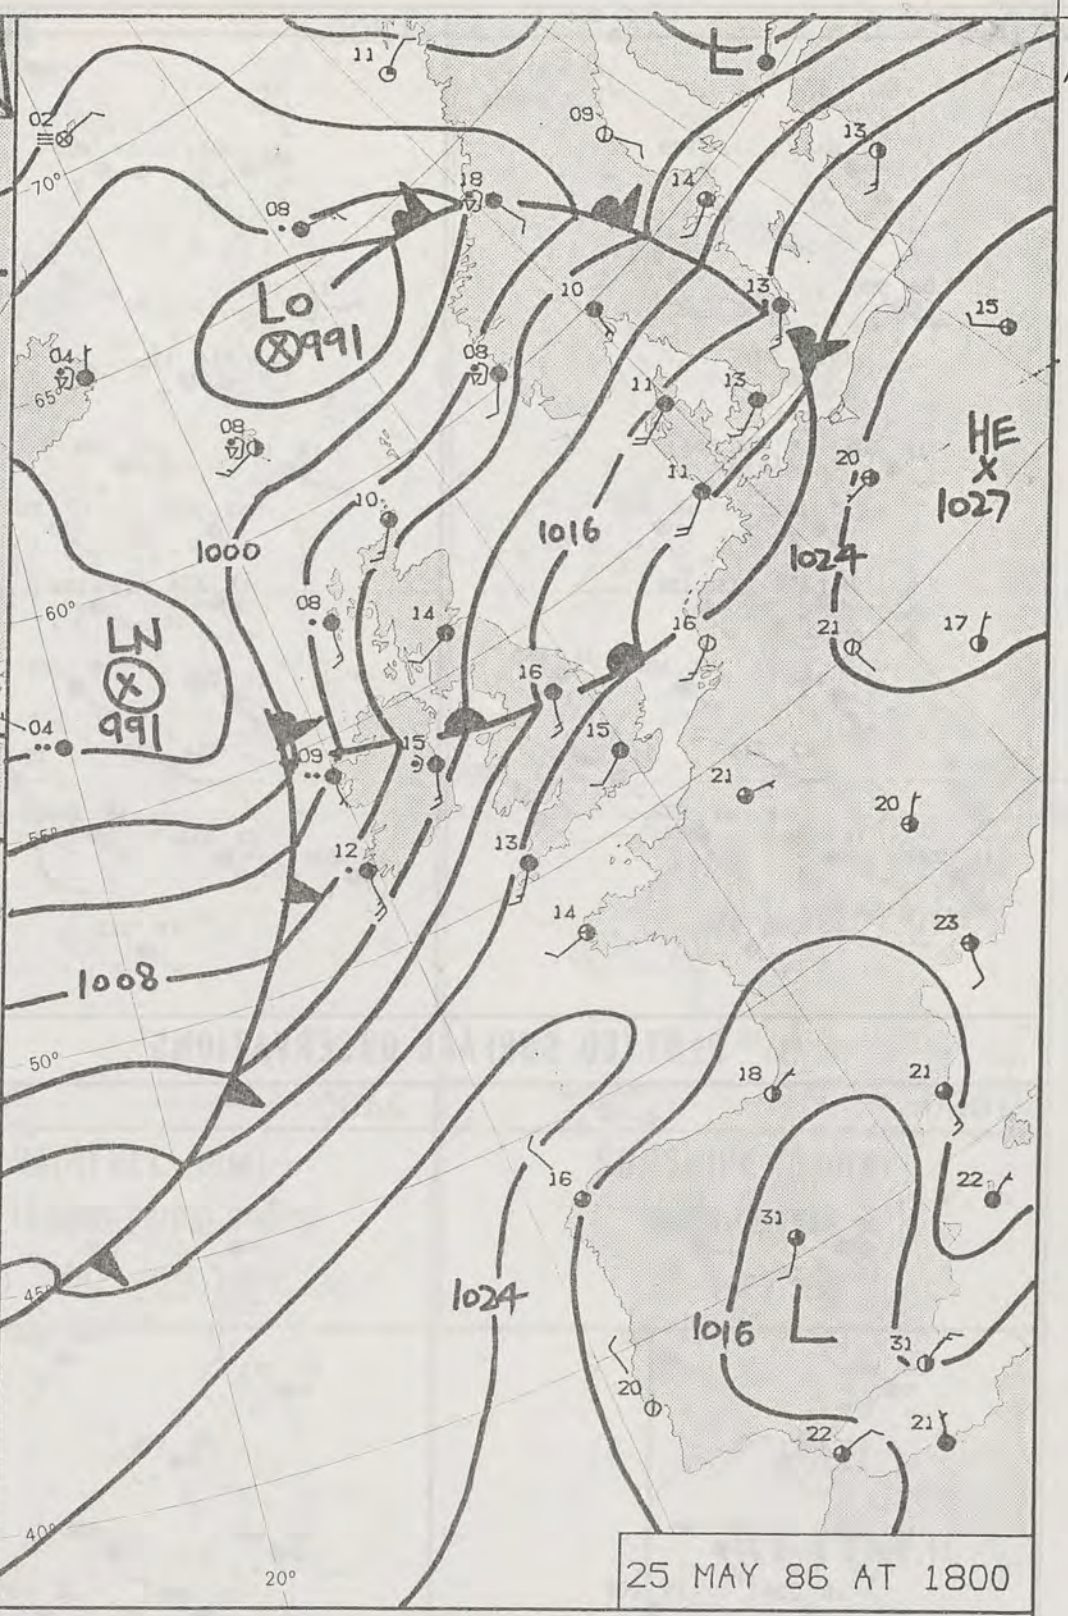 L
11
02
09
13
70°
18
14
08
LO
991
10
13
15
04
08
65°
11
13
08
HE
X
1027
20
10
11
1000
1016
1024
60°
08
14
16
21
17
LW
991
16
04
09
15
15
21
20
55°
12
13
14
23
1008
50°
18
21
16
22
31
45°
1024
1016
L
31
20
22
21
40°
20°
25 MAY 86 AT 1800